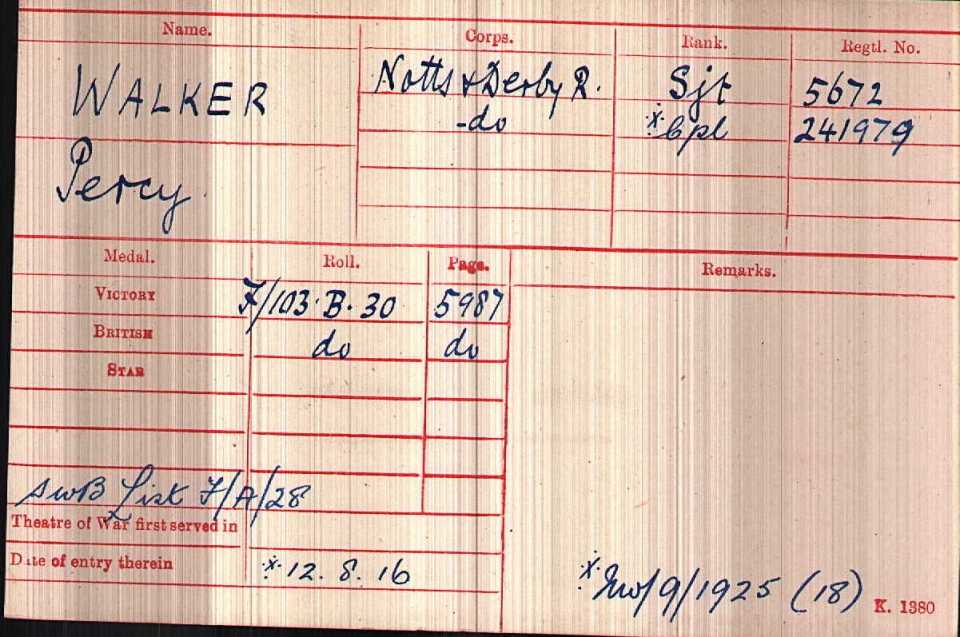 Name. Corps. Rank. Regtl. No.
WALKER Notts & Derby R. Sjt 5672
-do Cpl 241979
Percy.
Medal. Roll. Page. Remarks.
VICTORY F/103.B.30 5987
BRITISH do do
STAR
SWB List F/A/28
Theatre of War first served in
Date of entry therein 12.8.16
/9/1925 (18) K. 1380